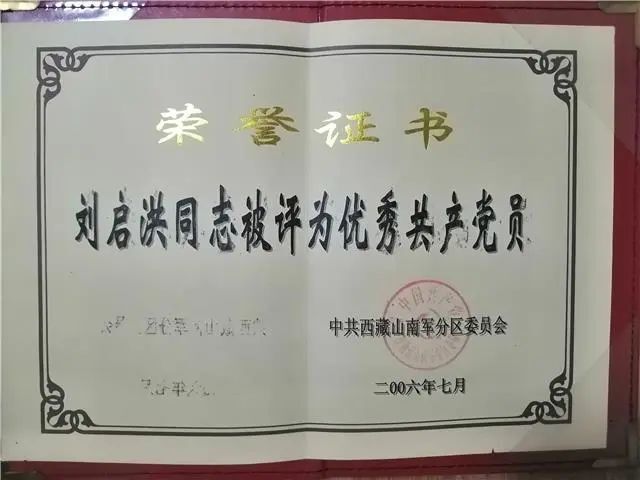 荣誉证书
刘启洪同志被评为优秀共产党员
中共西藏山南军分区委员会
二00六年七月